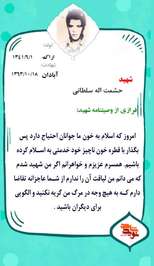 تولد
اراک ۱۳۴۱/۹/۱
شهادت
آبادان ۱۳۶۳/۱۰/۱۸
شهید
حشمت اله سلطانی
فرازی از وصیتنامه شهید:
امروز که اسلام به خون ما جوانان احتیاج دارد پس
بگذار با قطره خون ناچیز خود خدمتی به اسلام کرده
باشیم. همسرم عزیزم و خواهرانم اگر من شهید شدم
که می دانم من لیاقت آن را ندارم از شما عاجزانه تقاضا
دارم کـه به هیچ وجه در مرگ من گریه نکنید و الگویی
برای دیگران باشید .